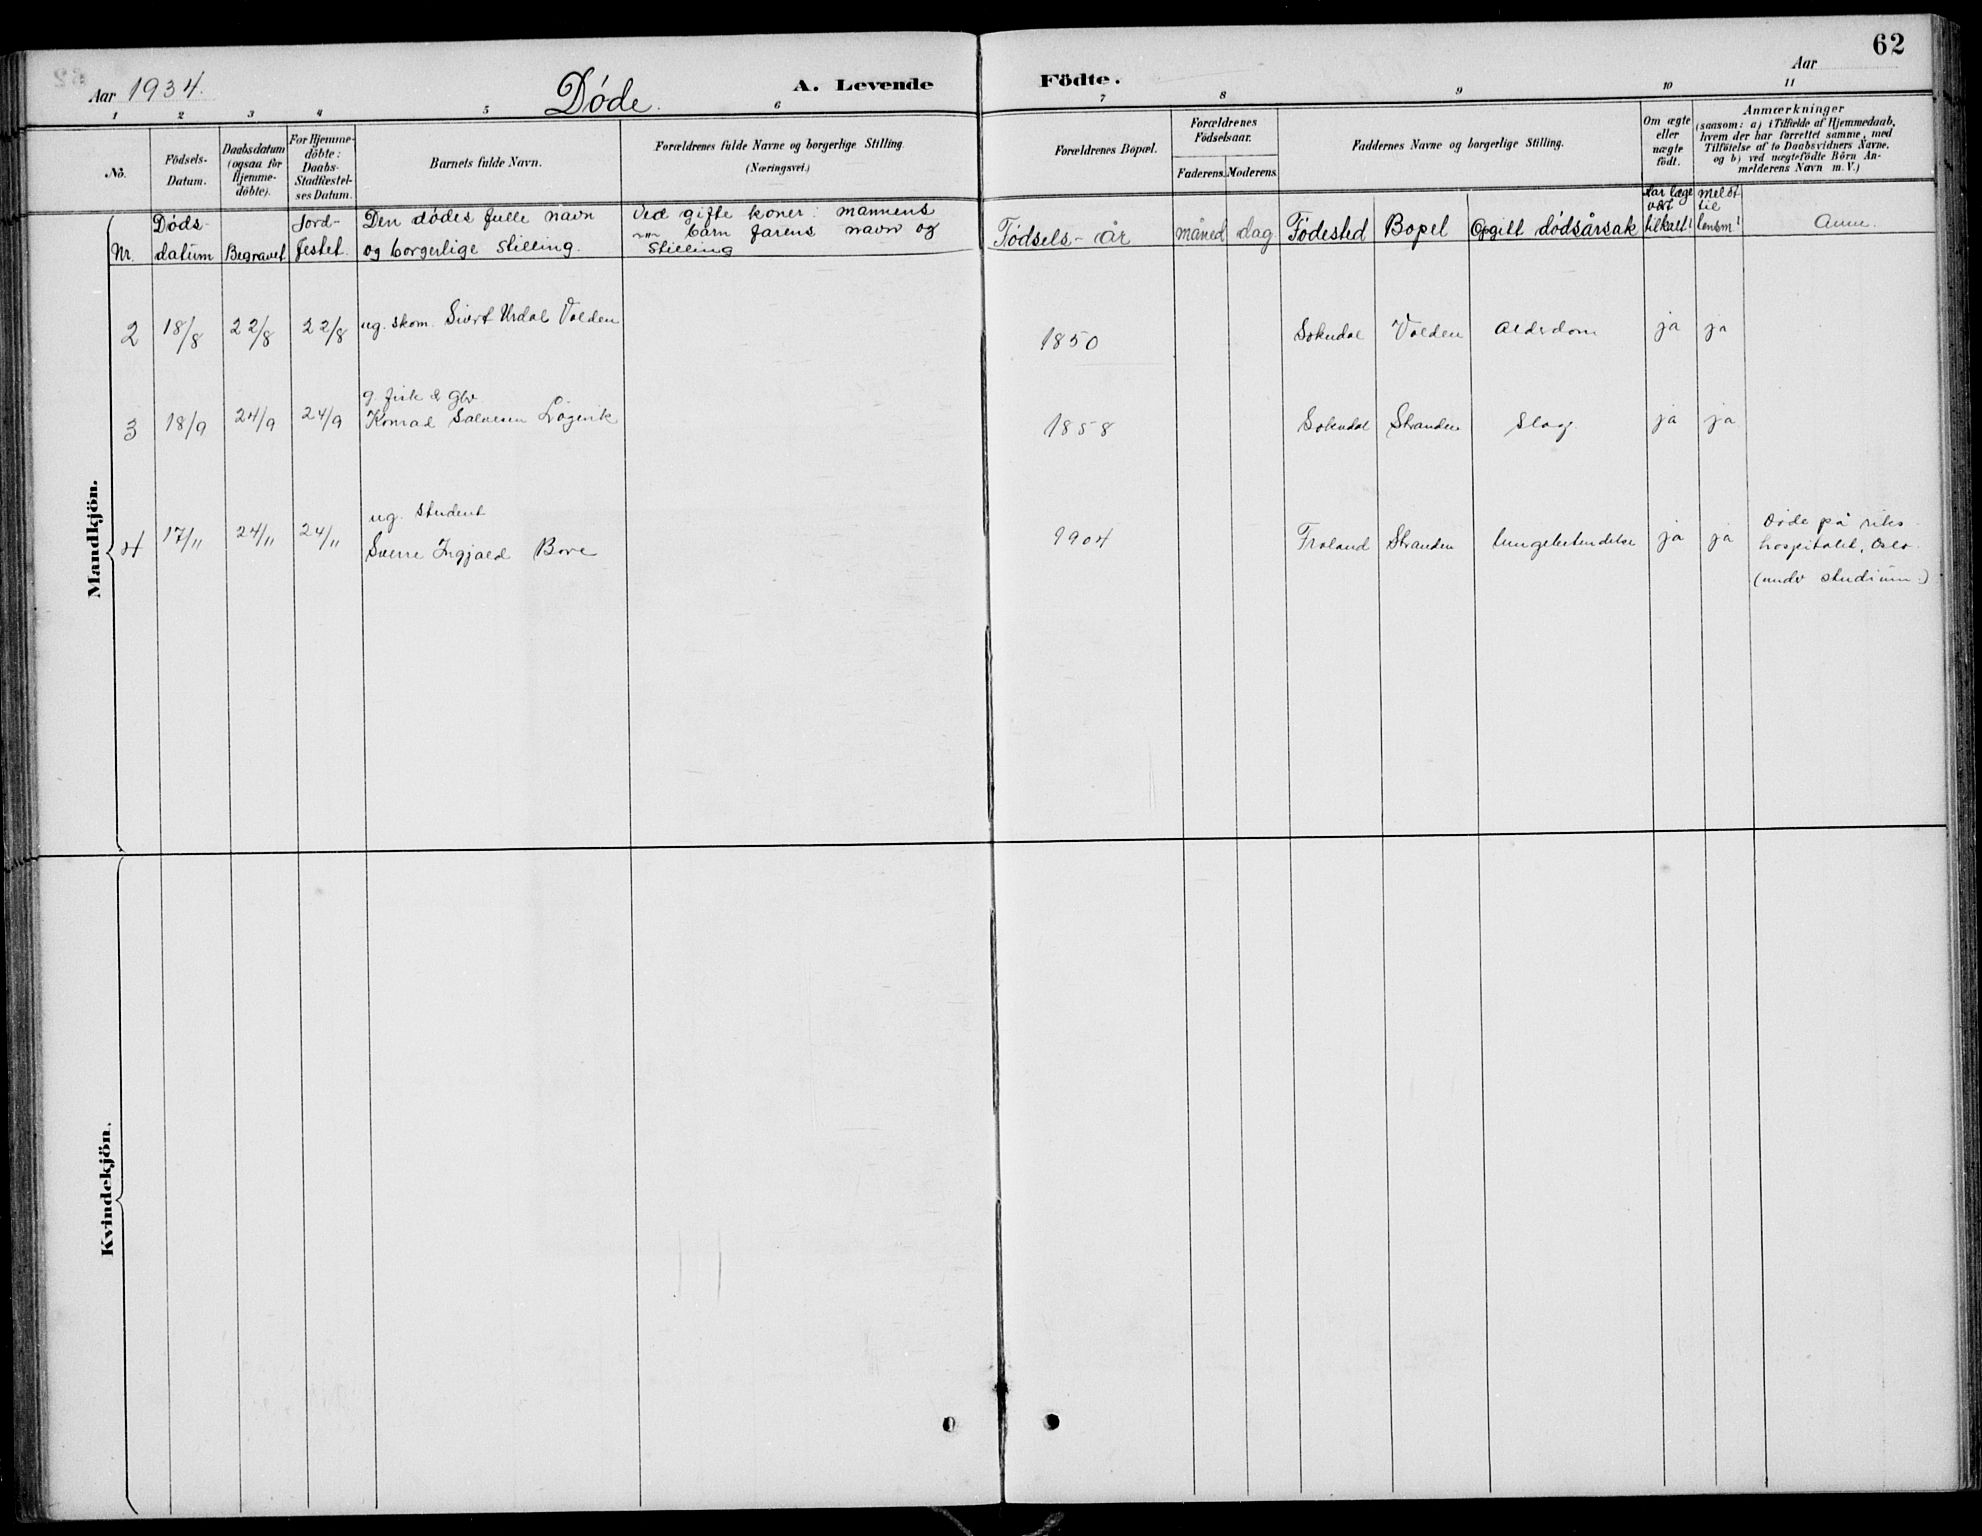 62
Aar 1934.
Døde.
A. Levende Födte.
Aar
1 2 3 4 5 6 7 8 9 10 11
No.
Födsels-
Datum.
Daabsdatum
(ogsaa for
Hjemme-
döbte).
For Hjemme-
döbte:
Daabs-
Stadfæstel-
ses Datum.
Barnets fulde Navn.
Forældrenes fulde Navne og borgerlige Stilling.
(Næringsvei.)
Forældrenes Bopæl.
Forældrenes
Födselsaar.
Faderens. Moderens.
Faddernes Navne og borgerlige Stilling.
Om ægte
eller
uægte
födt.
Anmærkninger
(saasom: a) i Tilfælde af Hjemmedaab,
hvem der har forrettet samme, med
Tilföielse af to Daabsvidners Navne,
og b) ved uægtefödte Börn An-
melderens Navn m.V.)
Nr.
Døds-
datum
Begravet
Jord-
festet.
Den dødes fulle navn
og borgerlige stilling.
Ved gifte koner: mannens
barn farens navn og
stilling
Fødsels-år
måned
dag
Fødested
Bopel
Opgitt dødsårsak
Var læge
vært
tilkalt?
melst
til
lensm?
Anm.
Mandkjön.
2 18/8 22/8 22/8 ug. skom. Sivert Urdal Valden 1850 Sokndal Valden Alderdom ja ja
g. fisk & gbr
3 18/9 24/9 24/9 Konrad Salvesen Løgevik 1858 Sokndal Stranden Slag ja ja
ug. student
4 17/11 24/11 24/11 Sverre Ingjald Bore 1904 Froland Stranden lungebetendelse ja ja
Døde på riks-
hospitalet, Oslo.
(under studium.)
Kvindekjön.